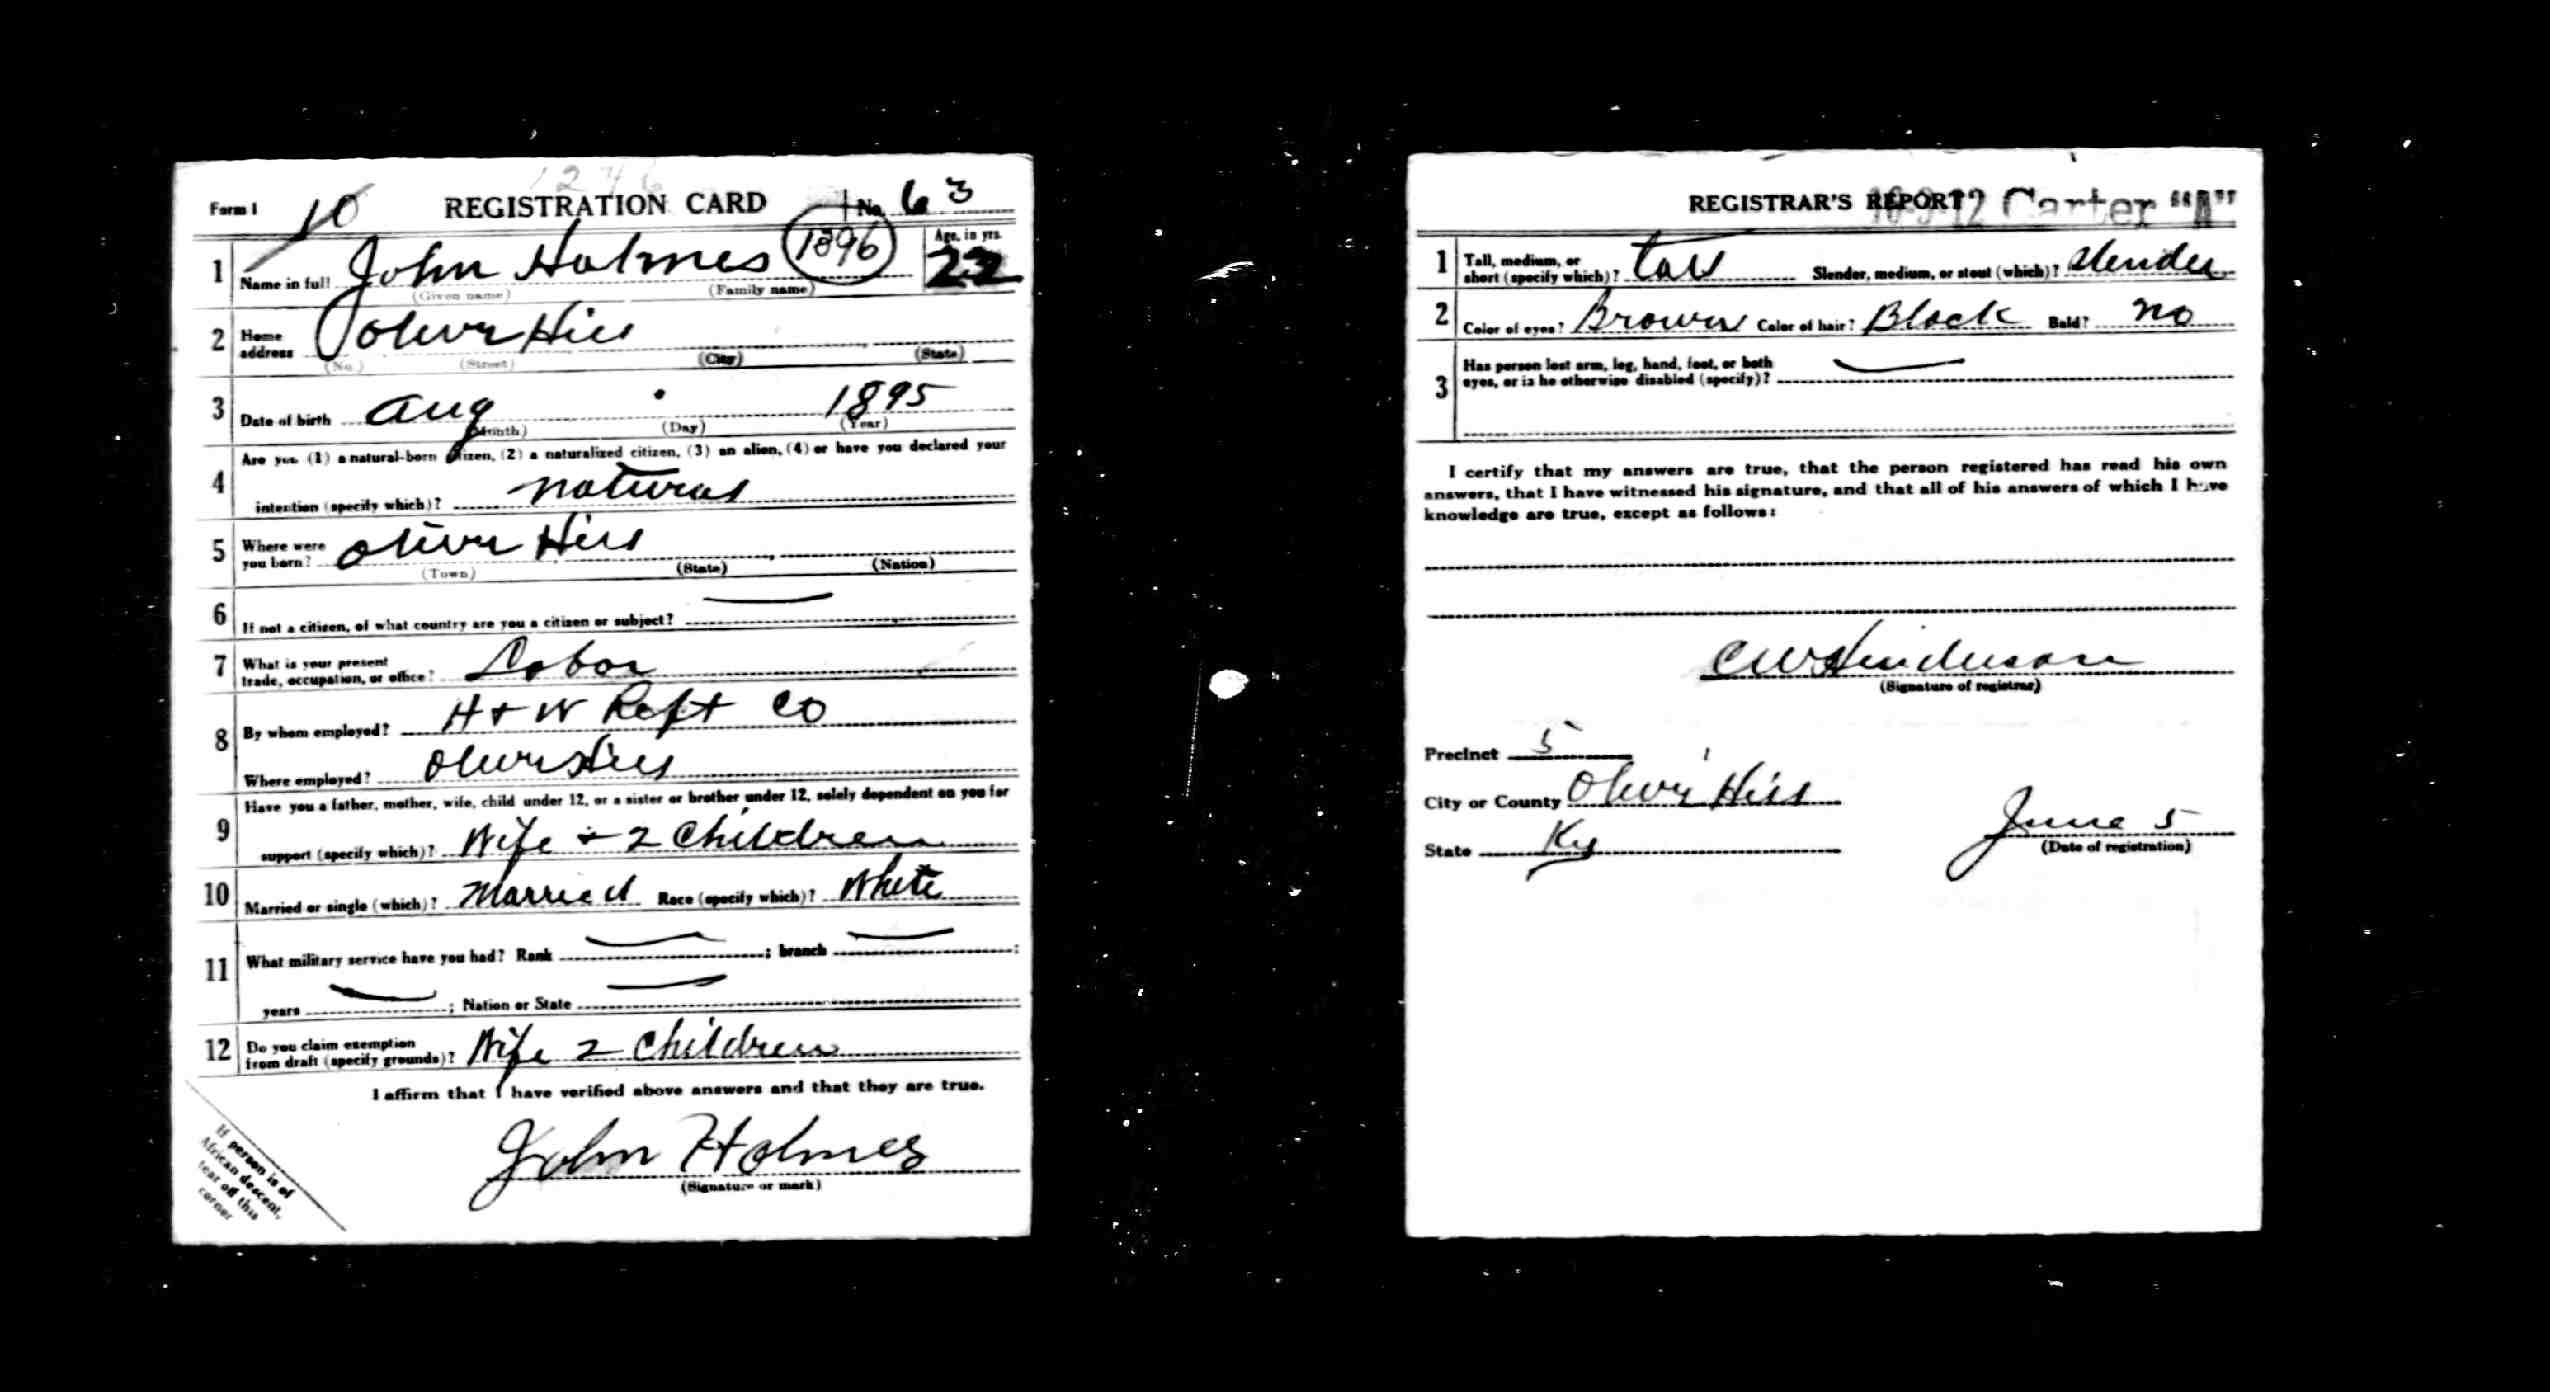 Form 1 10 REGISTRATION CARD No. 63
1 Name in full John Holmes 1896 Age, in yrs. 22
(Given name) (Family name)
2 Home address Oliver Hill
(No.) (Street) (City) (State)
3 Date of birth Aug 1895
(Month) (Day) (Year)
4 Are you (1) a natural-born citizen, (2) a naturalized citizen, (3) an alien, (4) or have you declared your
intention (specify which)? natural
5 Where were you born? Oliver Hill
(Town) (State) (Nation)
6 If not a citizen, of what country are you a citizen or subject?
7 What is your present trade, occupation, or office? Labor
8 By whom employed? H + W Reft Co
Where employed? Oliver Hill
9 Have you a father, mother, wife, child under 12, or a sister or brother under 12, solely dependent on you for
support (specify which)? Wife + 2 Children
10 Married or single (which)? Married Race (specify which)? White
11 What military service have you had? Rank ; branch ;
years ; Nation or State
12 Do you claim exemption from draft (specify grounds)? Wife 2 Children
I affirm that I have verified above answers and that they are true.
John Holmes
(Signature or mark)
If person is of
African descent,
tear off this
corner
REGISTRAR'S REPORT Carter "A"
1 Tall, medium, or short (specify which)? tall Slender, medium, or stout (which)? slender
2 Color of eyes? Brown Color of hair? Black Bald? no
3 Has person lost arm, leg, hand, foot, or both
eyes, or is he otherwise disabled (specify)?
I certify that my answers are true, that the person registered has read his own
answers, that I have witnessed his signature, and that all of his answers of which I have
knowledge are true, except as follows:
CW Henderson
(Signature of registrar)
Precinct 5
City or County Oliver Hill
State Ky June 5
(Date of registration)